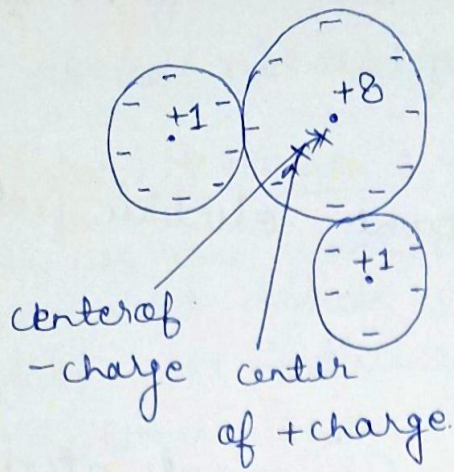 +8
+1
+1
center of
- charge
center
of + charge.